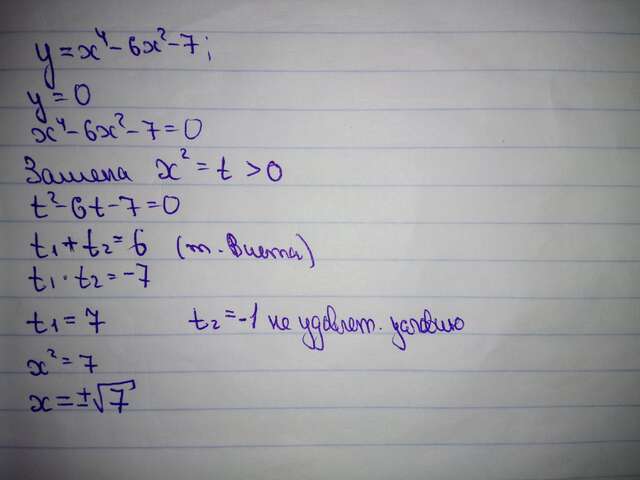 y = x⁴ - 6x² - 7 ;
y = 0
x⁴ - 6x² - 7 = 0
Замена x² = t > 0
t² - 6t - 7 = 0
t₁ + t₂ = 6 (т. Виета)
t₁ · t₂ = -7
t₁ = 7 t₂ = -1 не удовлет. условию
x² = 7
x = ±√7